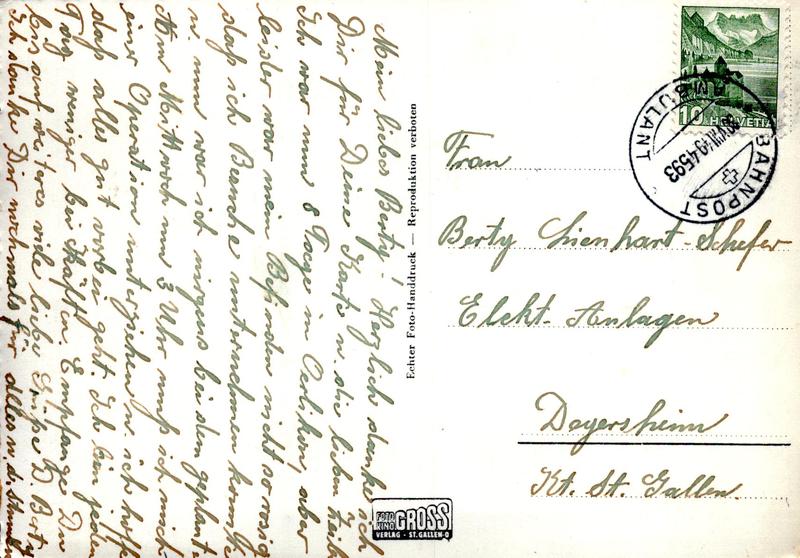 Mein liebes Berty! Herzlich danke ich
Dir für Deine Karte u. die lieben Zeil.
Ich war nun 8 Tage in Oerlikon, aber
leider war mein Befinden nicht so rosig
daß ich Besuche unternehmen konnte
u. nun war ich nirgens bei den geplant.
Am Mittwoch um 3 Uhr muß ich mich
einer Operation unterziehen u. ich hoffe
daß alles gut vorbei geht. Ich bin jeden
Tag weniger bei Kräften. Empfange Du
bis auf weiteres viele liebe Grüße D. Berty
Ich danke Dir nochmals für alles u. d.
Echter Foto-Handdruck — Reproduktion verboten
FOTO KINO GROSS
VERLAG - ST. GALLEN-O
10 HELVETIA
AMBULANT
4593
BAHNPOST
Frau
Berty Lienhart-Schefer
Elekt. Anlagen
Degersheim
Kt. St. Gallen.